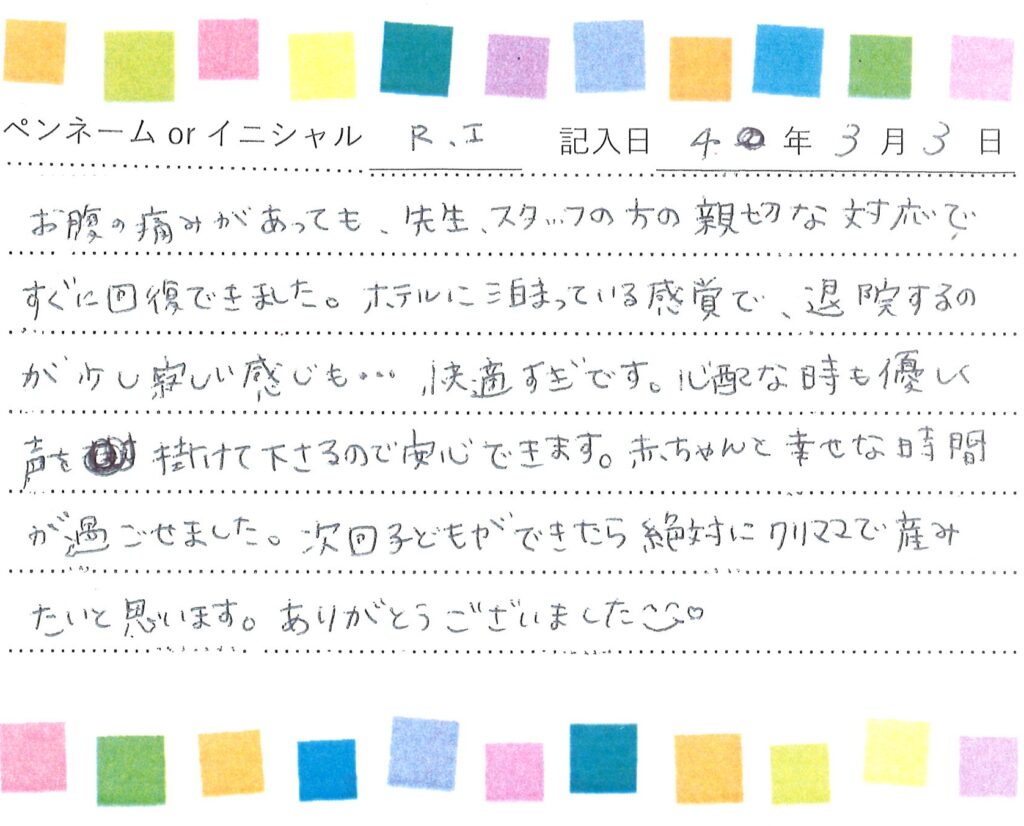 ペンネーム or イニシャル R.I 記入日 4年 3月 3日
お腹の痛みがあっても、先生、スタッフの方の親切な対応で
すぐに回復できました。ホテルに泊まっている感覚で、退院するの
が少し寂しい感じも… 快適すぎです。心配な時も優しく
声を掛けて下さるので安心できます。赤ちゃんと幸せな時間
が過ごせました。次回子どもができたら絶対にクリママで産み
たいと思います。ありがとうございました♡